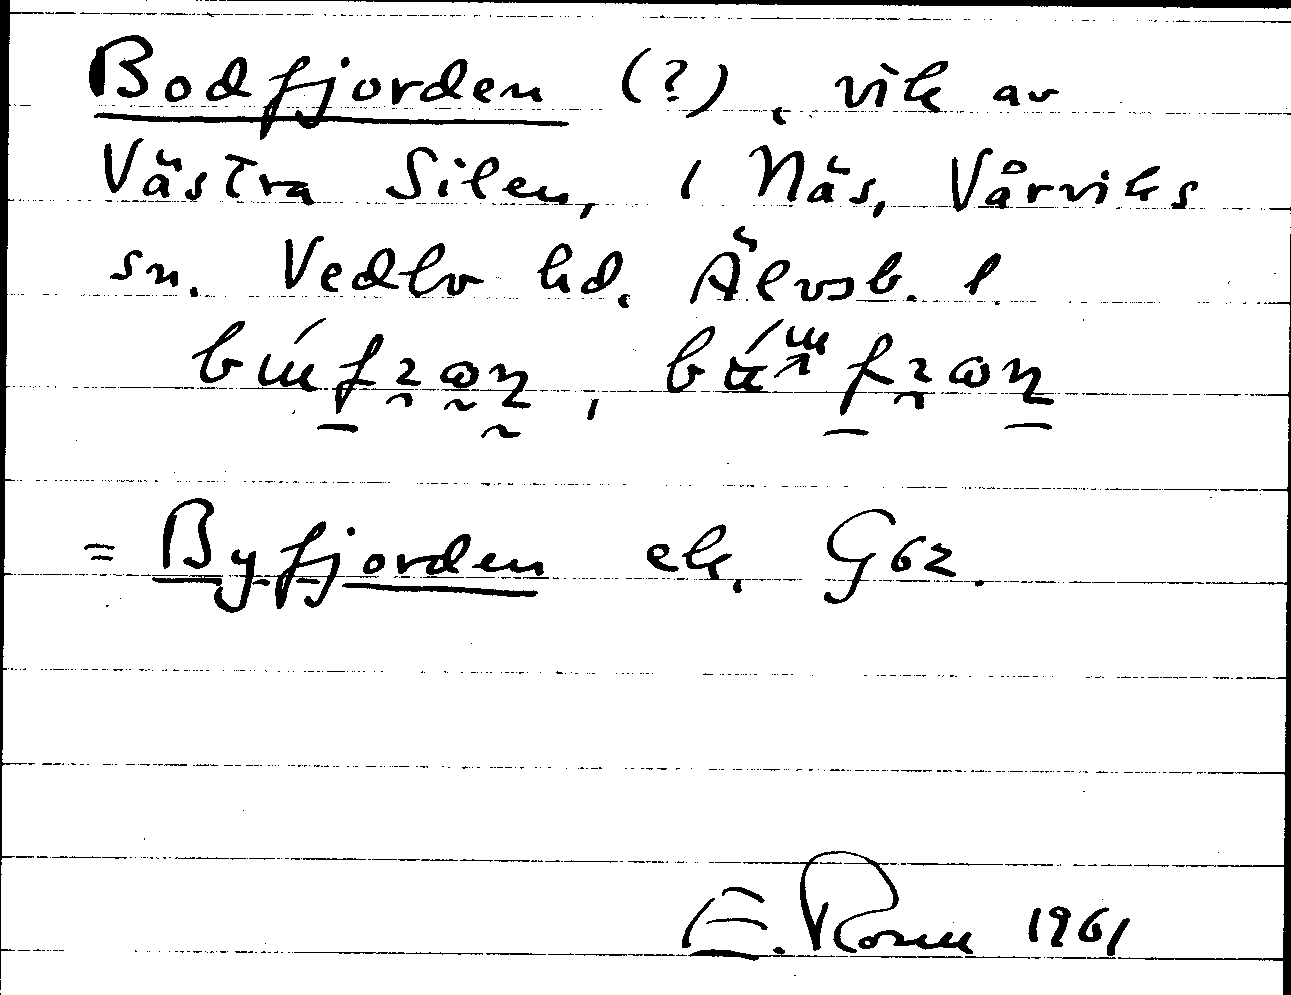 Bodfjorden (?), vik av
Västra Silen, i Näs, Vårviks
sn. Vedbo hd. Älvsb. l.
= Byfjorden ek. G62.
E. Rosell 1961